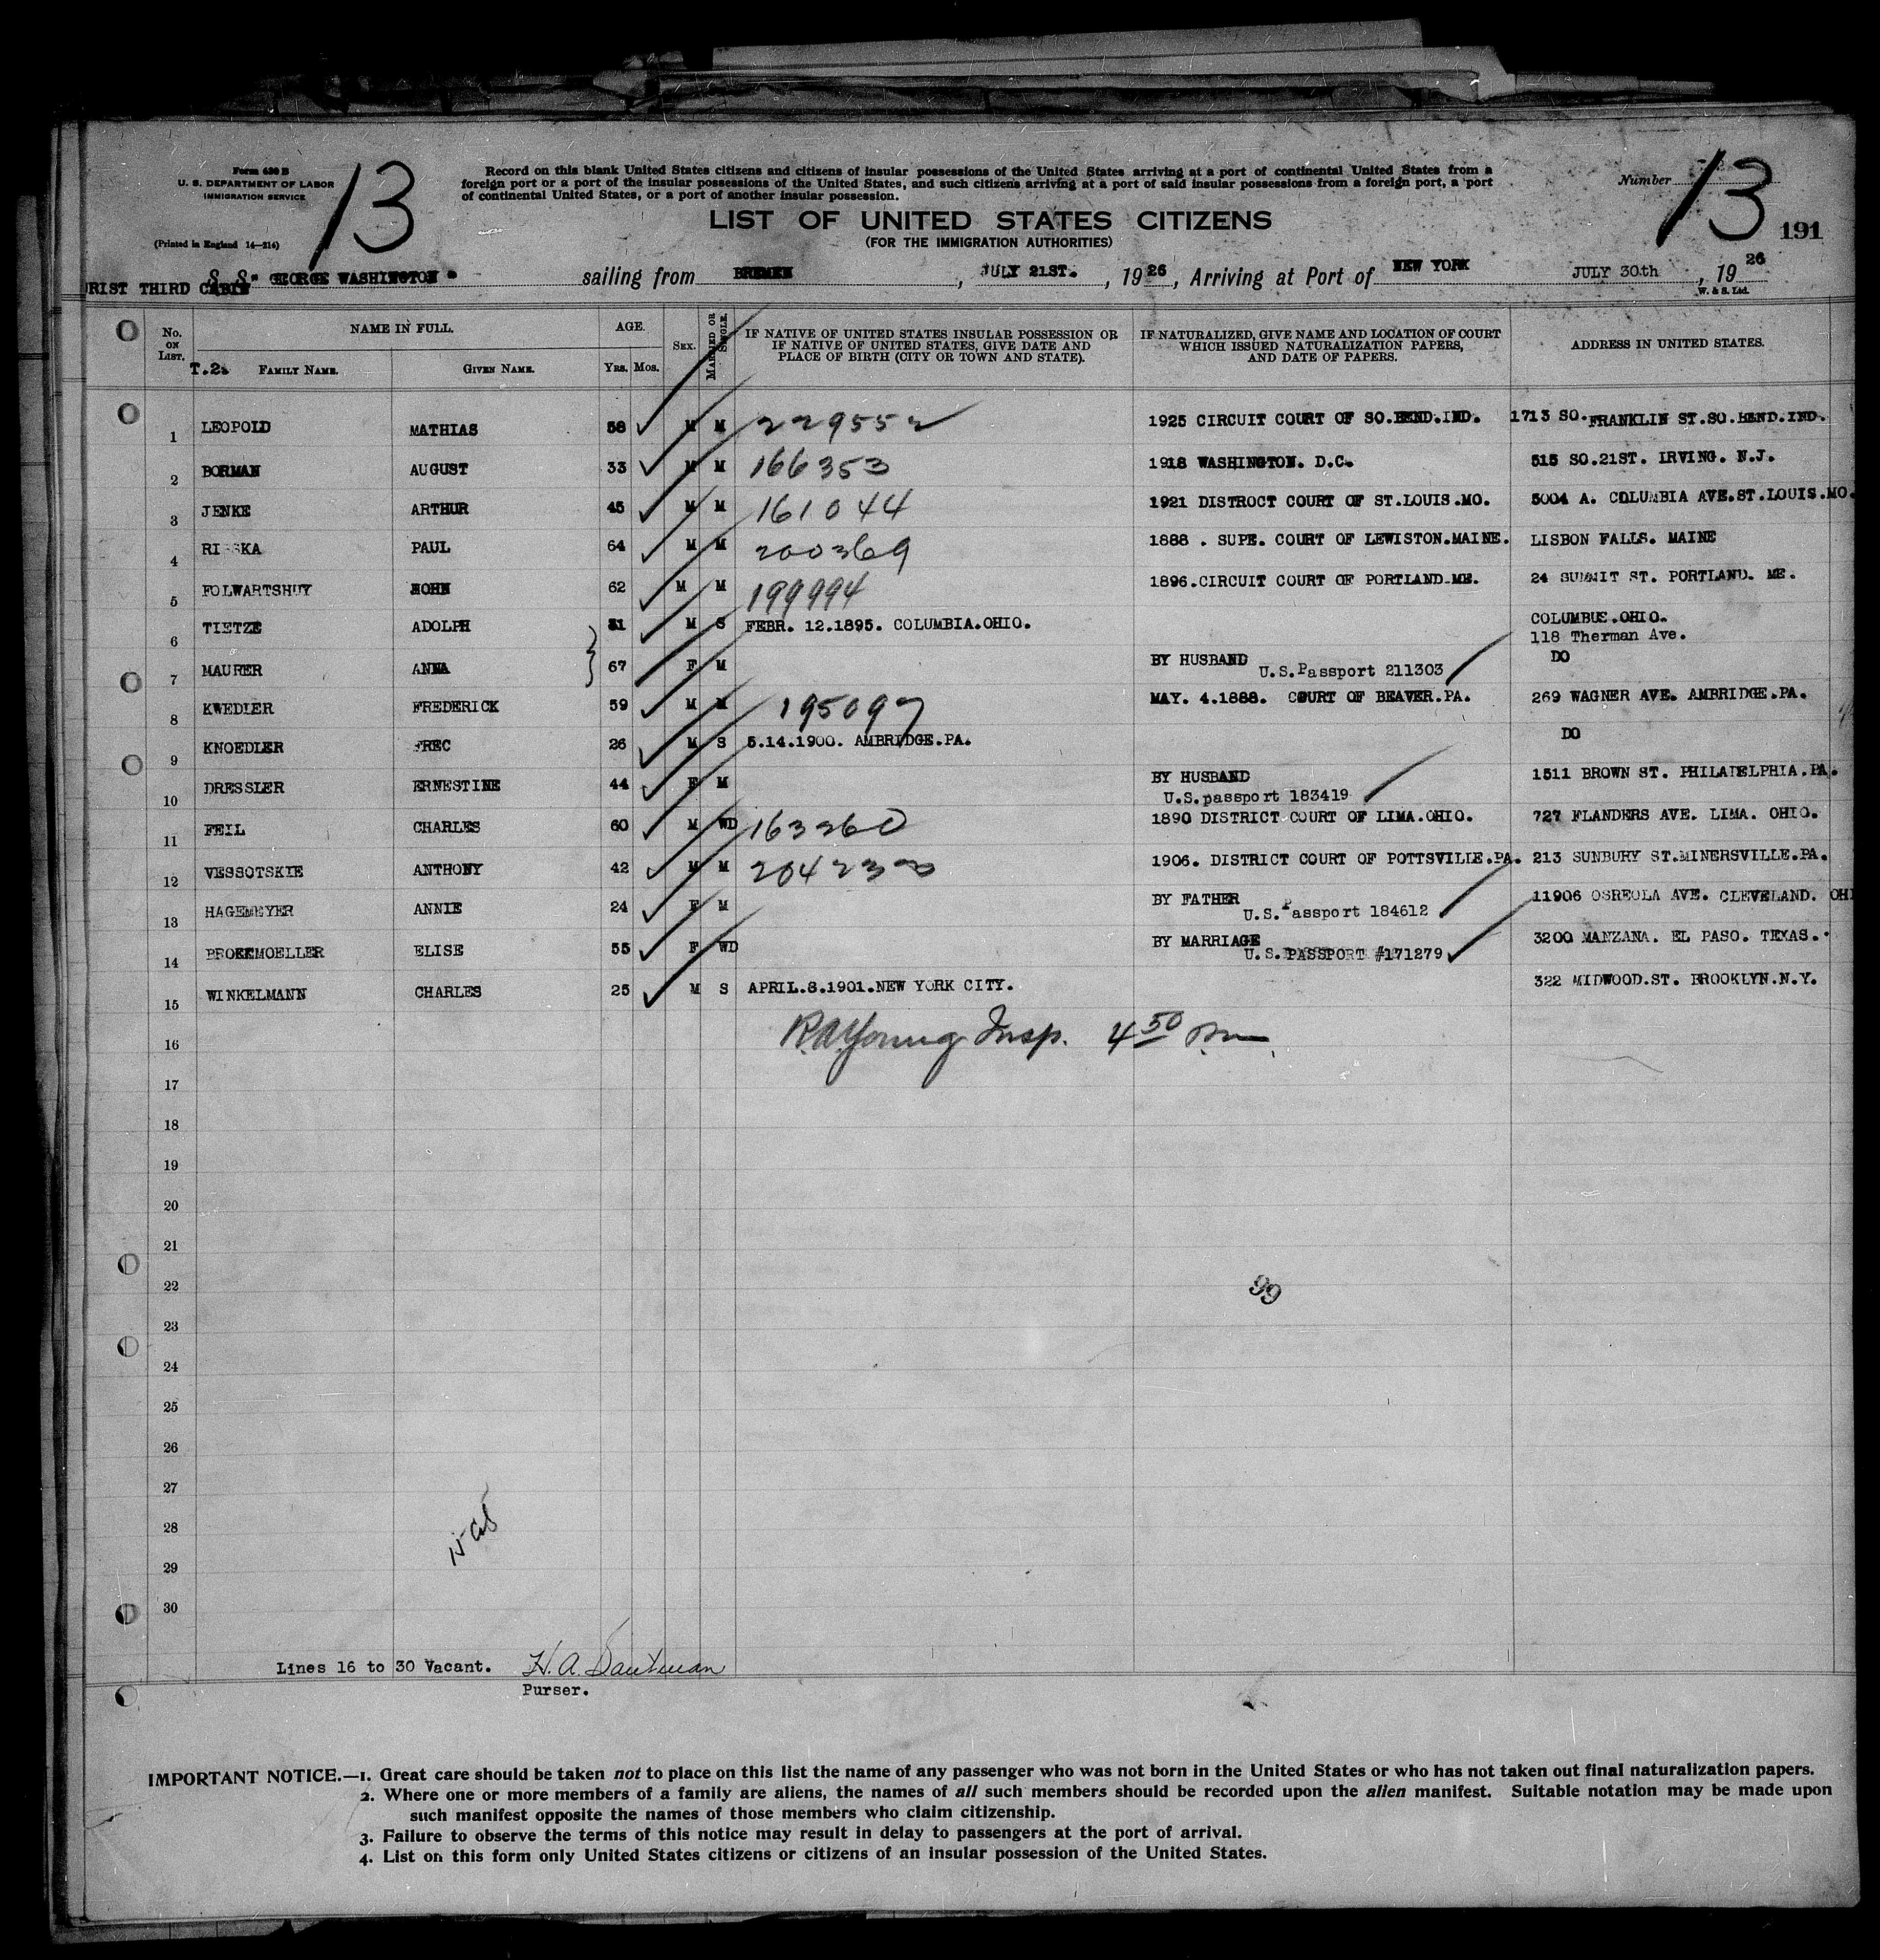 Form 630 B
U. S. DEPARTMENT OF LABOR
IMMIGRATION SERVICE
(Printed in England 14—214)
13
Record on this blank United States citizens and citizens of insular possessions of the United States arriving at a port of continental United States from a
foreign port or a port of the insular possessions of the United States, and such citizens arriving at a port of said insular possessions from a foreign port, a port
of continental United States, or a port of another insular possession.
Number 13
191
LIST OF UNITED STATES CITIZENS
(FOR THE IMMIGRATION AUTHORITIES)
S. S. " GEORGE WASHINGTON " sailing from BREMEN, JULY 21ST., 1926, Arriving at Port of NEW YORK JULY 30th, 1926
RIST THIRD CABIN
W. & S. Ltd.
No. ON LIST. NAME IN FULL. AGE. SEX. MARRIED OR SINGLE. IF NATIVE OF UNITED STATES INSULAR POSSESSION OR IF NATIVE OF UNITED STATES, GIVE DATE AND PLACE OF BIRTH (CITY OR TOWN AND STATE). IF NATURALIZED, GIVE NAME AND LOCATION OF COURT WHICH ISSUED NATURALIZATION PAPERS, AND DATE OF PAPERS. ADDRESS IN UNITED STATES.
T.2. FAMILY NAME. GIVEN NAME. YRS. MOS.
1 LEOPOLD MATHIAS 58 M M 229552 1925 CIRCUIT COURT OF SO.BEND.IND. 1713 SO.FRANKLIN ST.SO.BEND.IND.
2 BORMAN AUGUST 33 M M 166353 1918 WASHINGTON. D.C. 515 SO.21ST. IRVING. N.J.
3 JENKE ARTHUR 45 M M 161044 1921 DISTROCT COURT OF ST.LOUIS.MO. 5004 A. COLUMBIA AVE.ST.LOUIS.MO.
4 PAUL 64 M M 200369 1888 . SUPE. COURT OF LEWISTON.MAINE. LISBON FALLS. MAINE
5 FOLWARTSHUY 62 M M 199994 1896.CIRCUIT COURT OF PORTLAND.ME. 24 SUMMIT ST. PORTLAND. ME.
6 TIETZE ADOLPH 31 M S FEBR. 12.1895. COLUMBIA.OHIO. COLUMBUS.OHIO.
118 Therman Ave.
7 MAURER ANNA 67 F M BY HUSBAND U.S.Passport 211303 DO
8 KWEDLER FREDERICK 59 M M 195097 MAY. 4.1888. COURT OF BEAVER.PA. 269 WAGNER AVE. AMBRIDGE.PA.
9 KNOEDLER FREC 26 M S 5.14.1900. AMBRIDGE.PA. DO
10 DRESSLER ERNESTINE 44 F M BY HUSBAND 1511 BROWN ST. PHILADELPHIA.PA.
U.S.passport 183419
11 FEIL CHARLES 60 M WD 163260 1890 DISTRICT COURT OF LIMA.OHIO. 727 FLANDERS AVE. LIMA. OHIO.
12 VESSOTSKIE ANTHONY 42 M M 204230 1906. DISTRICT COURT OF POTTSVILLE.PA. 213 SUNBURY ST.MINERSVILLE.PA.
13 HAGEMEYER ANNIE 24 F M BY FATHER 11906 OSREOLA AVE. CLEVELAND. OHI
U.S.Passport 184612
14 ELISE 55 F WD BY MARRIAGE 3200 MANZANA. EL PASO. TEXAS.
U.S.PASSPORT #171279
15 WINKELMANN CHARLES 25 M S APRIL.8.1901.NEW YORK CITY. 322 MIDWOOD.ST. BROOKLYN.N.Y.
16 R.A.Young Insp. 4 50 pm
17
18
19
20
21
22 99
23
24
25
26
27
28
29
30
Lines 16 to 30 Vacant. H. A.
Purser.
IMPORTANT NOTICE.—1. Great care should be taken not to place on this list the name of any passenger who was not born in the United States or who has not taken out final naturalization papers.
2. Where one or more members of a family are aliens, the names of all such members should be recorded upon the alien manifest. Suitable notation may be made upon
such manifest opposite the names of those members who claim citizenship.
3. Failure to observe the terms of this notice may result in delay to passengers at the port of arrival.
4. List on this form only United States citizens or citizens of an insular possession of the United States.